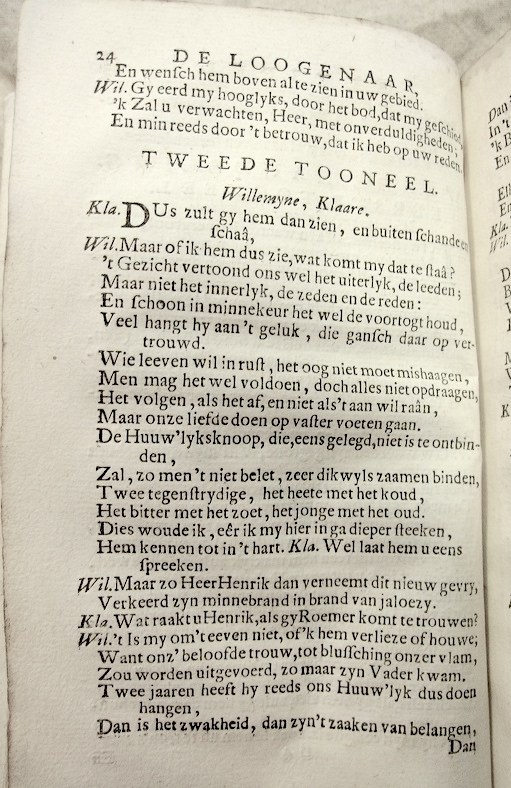 24 DE LOOGENAAR,
En wensch hem boven al te zien in uw gebied.
Wil. Gy eerd my hooglyks, door het bod, dat my geschied,
'k Zal u verwachten, Heer, met onverduldigheden;
En min reeds door 't betrouw, dat ik heb op uw reden.
TWEEDE TOONEEL.
Willemyne, Klaare.
Kla. DUs zult gy hem dan zien, en buiten schande en
schaâ,
Wil. Maar of ik hem dus zie, wat komt my dat te staâ?
't Gezicht vertoond ons wel het uiterlyk, de leeden;
Maar niet het innerlyk, de zeden en de reden:
En schoon in minnekeur het wel de voortogt houd,
Veel hangt hy aan 't geluk, die gansch daar op ver-
trouwd.
Wie leeven wil in rust, het oog niet moet mishaagen,
Men mag het wel voldoen, doch alles niet opdraagen,
Het volgen, als het af, en niet als 't aan wil raân,
Maar onze liefde doen op vaster voeten gaan.
De Huuw'lyksknoop, die, eens gelegd, niet is te ontbin-
den,
Zal, zo men 't niet belet, zeer dikwyls zaamen binden,
Twee tegenstrydige, het heete met het koud,
Het bitter met het zoet, het jonge met het oud.
Dies woude ik, eêr ik my hier in ga dieper steeken,
Hem kennen tot in 't hart. Kla. Wel laat hem u eens
spreeken.
Wil. Maar zo Heer Henrik dan verneemt dit nieuw gevry,
Verkeerd zyn minnebrand in brand van jaloezy.
Kla. Wat raakt u Henrik, als gy Roemer komt te trouwen?
Wil. 't Is my om 't eeven niet, of 'k hem verlieze of houwe;
Want onz' beloofde trouw, tot blussching onzer vlam,
Zou worden uitgevoerd, zo maar zyn Vader kwam.
Twee jaaren heeft hy reeds ons Huuw'lyk dus doen
hangen,
Dan is het zwakheid, dan zyn't zaaken van belangen,
Dan